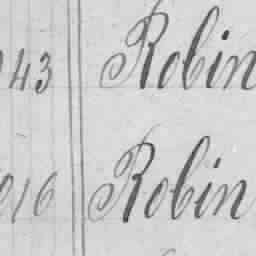 43 Robin
016 Robin